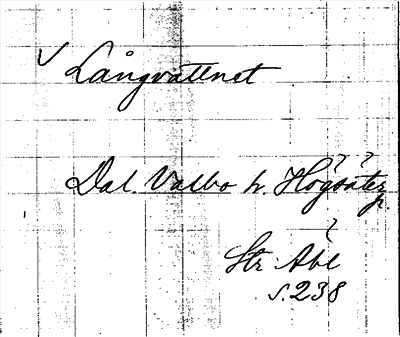 ✓ Långvattnet
Dal. Valbo h. Högsäter
p.
Str Abl
s. 238